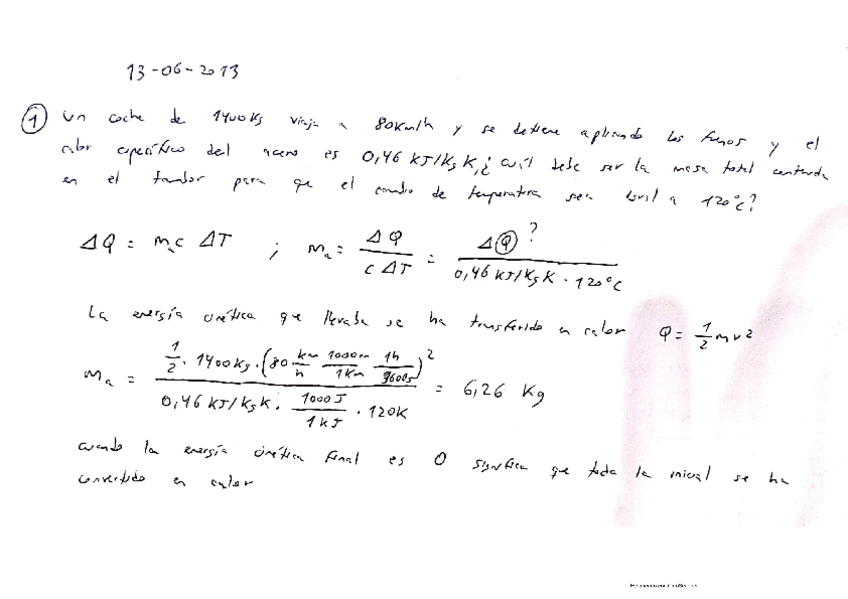 13-06-2013
① Un coche de 1400Kg viaja a 80Km/h y se detiene aplicando los frenos y el
calor específico del acero es 0,46 KJ/Kg K, ¿cuál debe ser la masa total contenida
en el tambor para que el cambio de temperatura sea igual a 120°C?
ΔQ = mₐc ΔT ; mₐ = ΔQ / (c ΔT) = ΔQ? / (0,46 KJ/Kg K · 120°C)
La energía cinética que llevaba se ha transferido en calor Q = 1/2 m v²
mₐ = (1/2 · 1400Kg · (80 Km/h · 1000m/1Km · 1h/3600s)²) / (0,46 KJ/Kg K · 1000J/1KJ · 120K) = 6,26 Kg
cuando la energía cinética final es 0 significa que toda la inicial se ha
convertido en calor